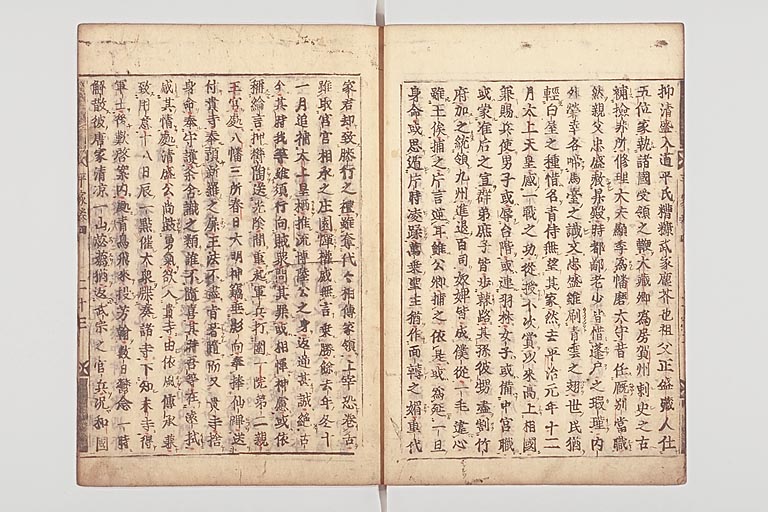 抑清盛入道平氏糟糠武家塵芥也祖父正盛蔵人仕
五位家執諸國受領之鞭大蔵卿為房賀州刺史之古
補撿非所修理大夫顕季為播磨大守昔任厩別當職
然親父忠盛敷昇殿時都鄙老少皆惜蓬戸之瑕瑾内
外榮幸各啼馬臺之讖文忠盛雖刷青雲之翅世民猶
軽白屋之種惜名青侍無望其家然去平治元年十二
月太上天皇感一戦之功從授不次賞以來高上相國
兼賜兵仗男子或辱台階或連羽林女子或備中宮職
或蒙准后之宣群弟庶子皆歩棘路其孫彼甥盡割竹
府加之統領九州進退百司奴婢皆成僕從一毛違心
雖王侯捕之片言逆耳雖公卿捕之依其或為延一旦
身命或思遁片時凌蹂萬乗聖主猶作面轉之媚重代
家君却致膝行之禮雖奪代々相傳家領上宰恐巻舌
雖取官官相承之庄園憚權威無言乗勝餘去年冬十
一月追捕太上皇栖推流博陸公之身返逆甚誠絶古
今其時我等雖須行向賊衆問其罪或相憚神慮或依
称綸言抑欝陶送光陰間重起軍兵打圍一院第二親
王宮處八幡三所春日大明神竊垂影向奉捧仙蹕送
付貴寺奉預新羅之扉王法不盡旨著隨而又貴寺捨
身命奉守護条含識之類誰不隨喜
感其情處清盛公尚鼓勇氣欲入貴寺由依風傳承兼
致用意十八日辰一點催大衆牒奏諸寺下知末寺得
軍士後欲啓案内處青鳥飛来投芳翰數日欝念一時
解散彼唐家清凉一山苾蒭猶返武宗之官兵況和國